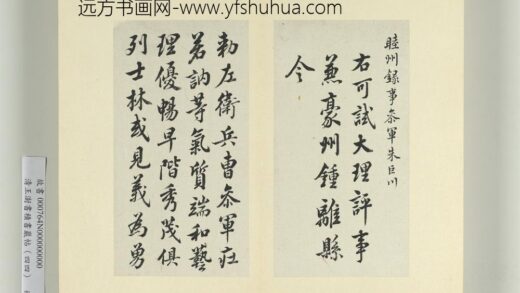 远方书画网-www.yfshuhua.com
睦州錄事叅軍朱巨川
右可試大理評事
兼豪州鍾離縣
令
勅左衛兵曹叅軍莊
若訥等氣質端和藝
理優暢早階秀茂俱
列士林或見義為勇
故書000764N000000000
清王澍書積書巖帖(四四)